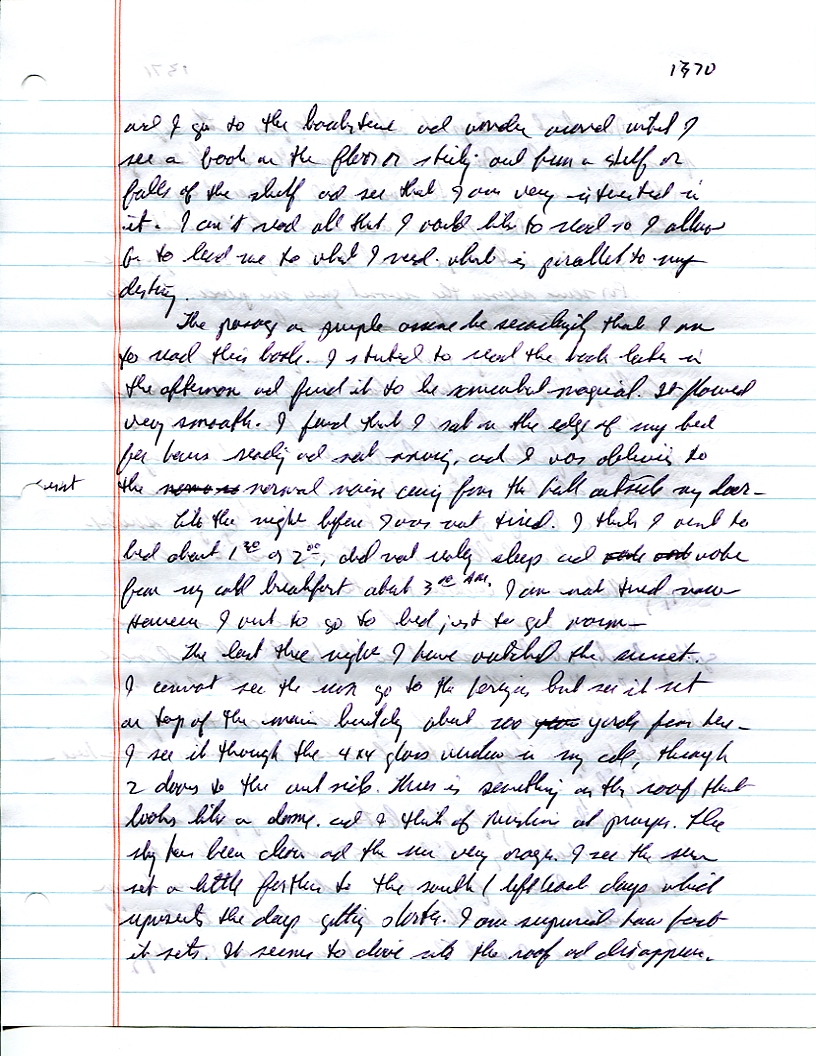 1370
and I go to the bookstore and wander around until I
see a book on the floor or sticking out from a shelf or
falls of the shelf and see that I am very interested in
it. I can't read all that I would like to read so I allow
to lead me to what I need. what is parallel to my
destiny.
The passage on purple assure me that I am
to read this book. I started to read the book later in
the afternoon and found it to be somewhat magical. It flowed
very smooth. I found that I sat on the edge of my bed
for hours reading and not moving, and I was oblivious to
the normal noise coming from the hall outside my door -
Like the night before I was not tired. I think I went to
bed about 1 30 or 2 00, did not really sleep and woke
for my cold breakfast about 3 AM. I am not tired now
However I want to go to bed just to get warm -
sunset
The last three night I have watched the sunset.
I cannot see the sun go to the horizon but see it set
on top of the main building about 200 yards from here -
I see it through the 4x4 glass window in my cell, through
2 doors to the out side. There is something on the roof that
looks like a dome. and I think of Muslim and prayer. The
sky has been clear and the sun very orange. I see the sun
set a little farther to the south / left each days which
represents the days getting shorter. I am surprised how fast
it sets. It seems to dive into the roof and disappear.